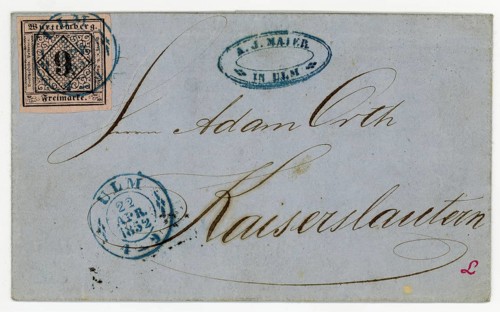 ULM
Württemberg.
9
Freimarke.
A. J. MAIER.
IN ULM
Herrn Adam Orth
Kaiserslautern
ULM
22
APR.
1852
L